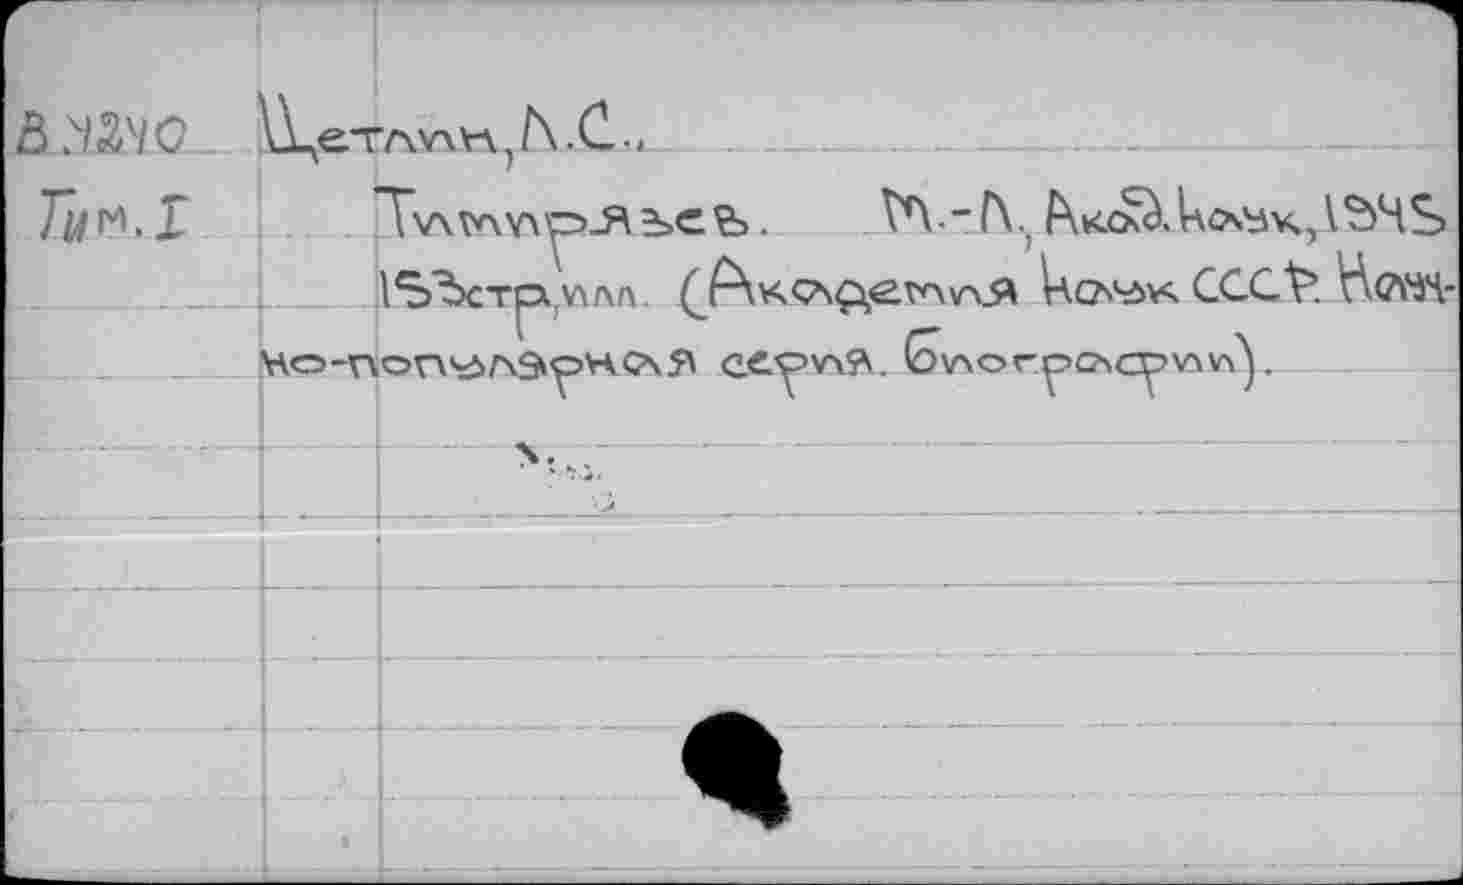 Цетлин, Л.С.,
Тим. I Тимирязев. М.-Л., Акад. Наук, 1945
193 стр., илл. (Академия Наук СССР. Науч-
но-популярная серия. Биографии).